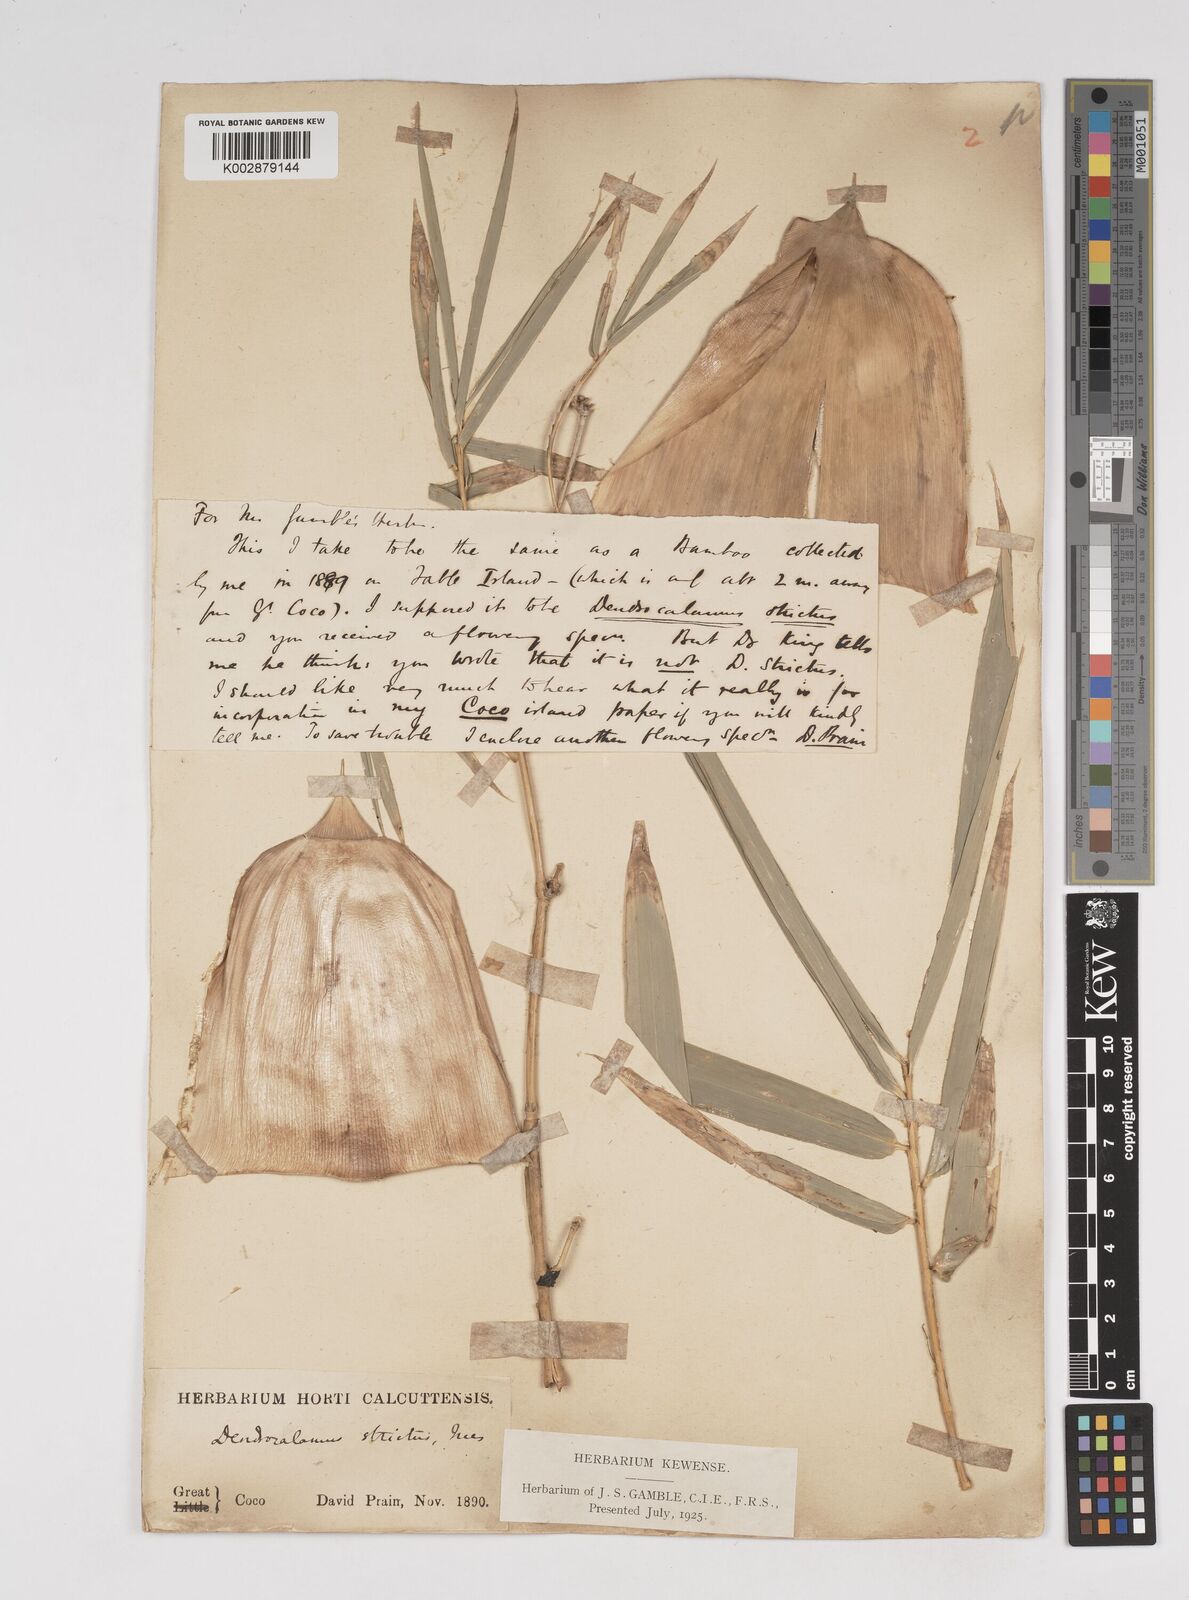 ROYAL BOTANIC GARDENS KEW
K002879144
2
For Mr Gamble's Herb.
This I take to be the same as a Bamboo collected
by me in 1889 on Table Island — (which is only abt 2 m. away
from Gt Coco). I supposed it to be Dendrocalamus strictus
and you received a flowering specn. But Dr King tells
me he thinks you wrote that it is not D. strictus.
I should like very much to hear what it really is for
incorporation in my Coco island paper if you will kindly
tell me. To save trouble I enclose another flowering specn — D. Prain
HERBARIUM HORTI CALCUTTENSIS.
Dendrocalamus strictus, Nees
Great
Little } Coco David Prain, Nov. 1890.
HERBARIUM KEWENSE.
Herbarium of J. S. GAMBLE, C.I.E., F.R.S.,
Presented July, 1925.
centimeters
M001051
Don Williams
Density
inches
Royal Botanic Gardens
Kew
0 1 2 3 4 5 6 7 8 9 10
cm
copyright reserved